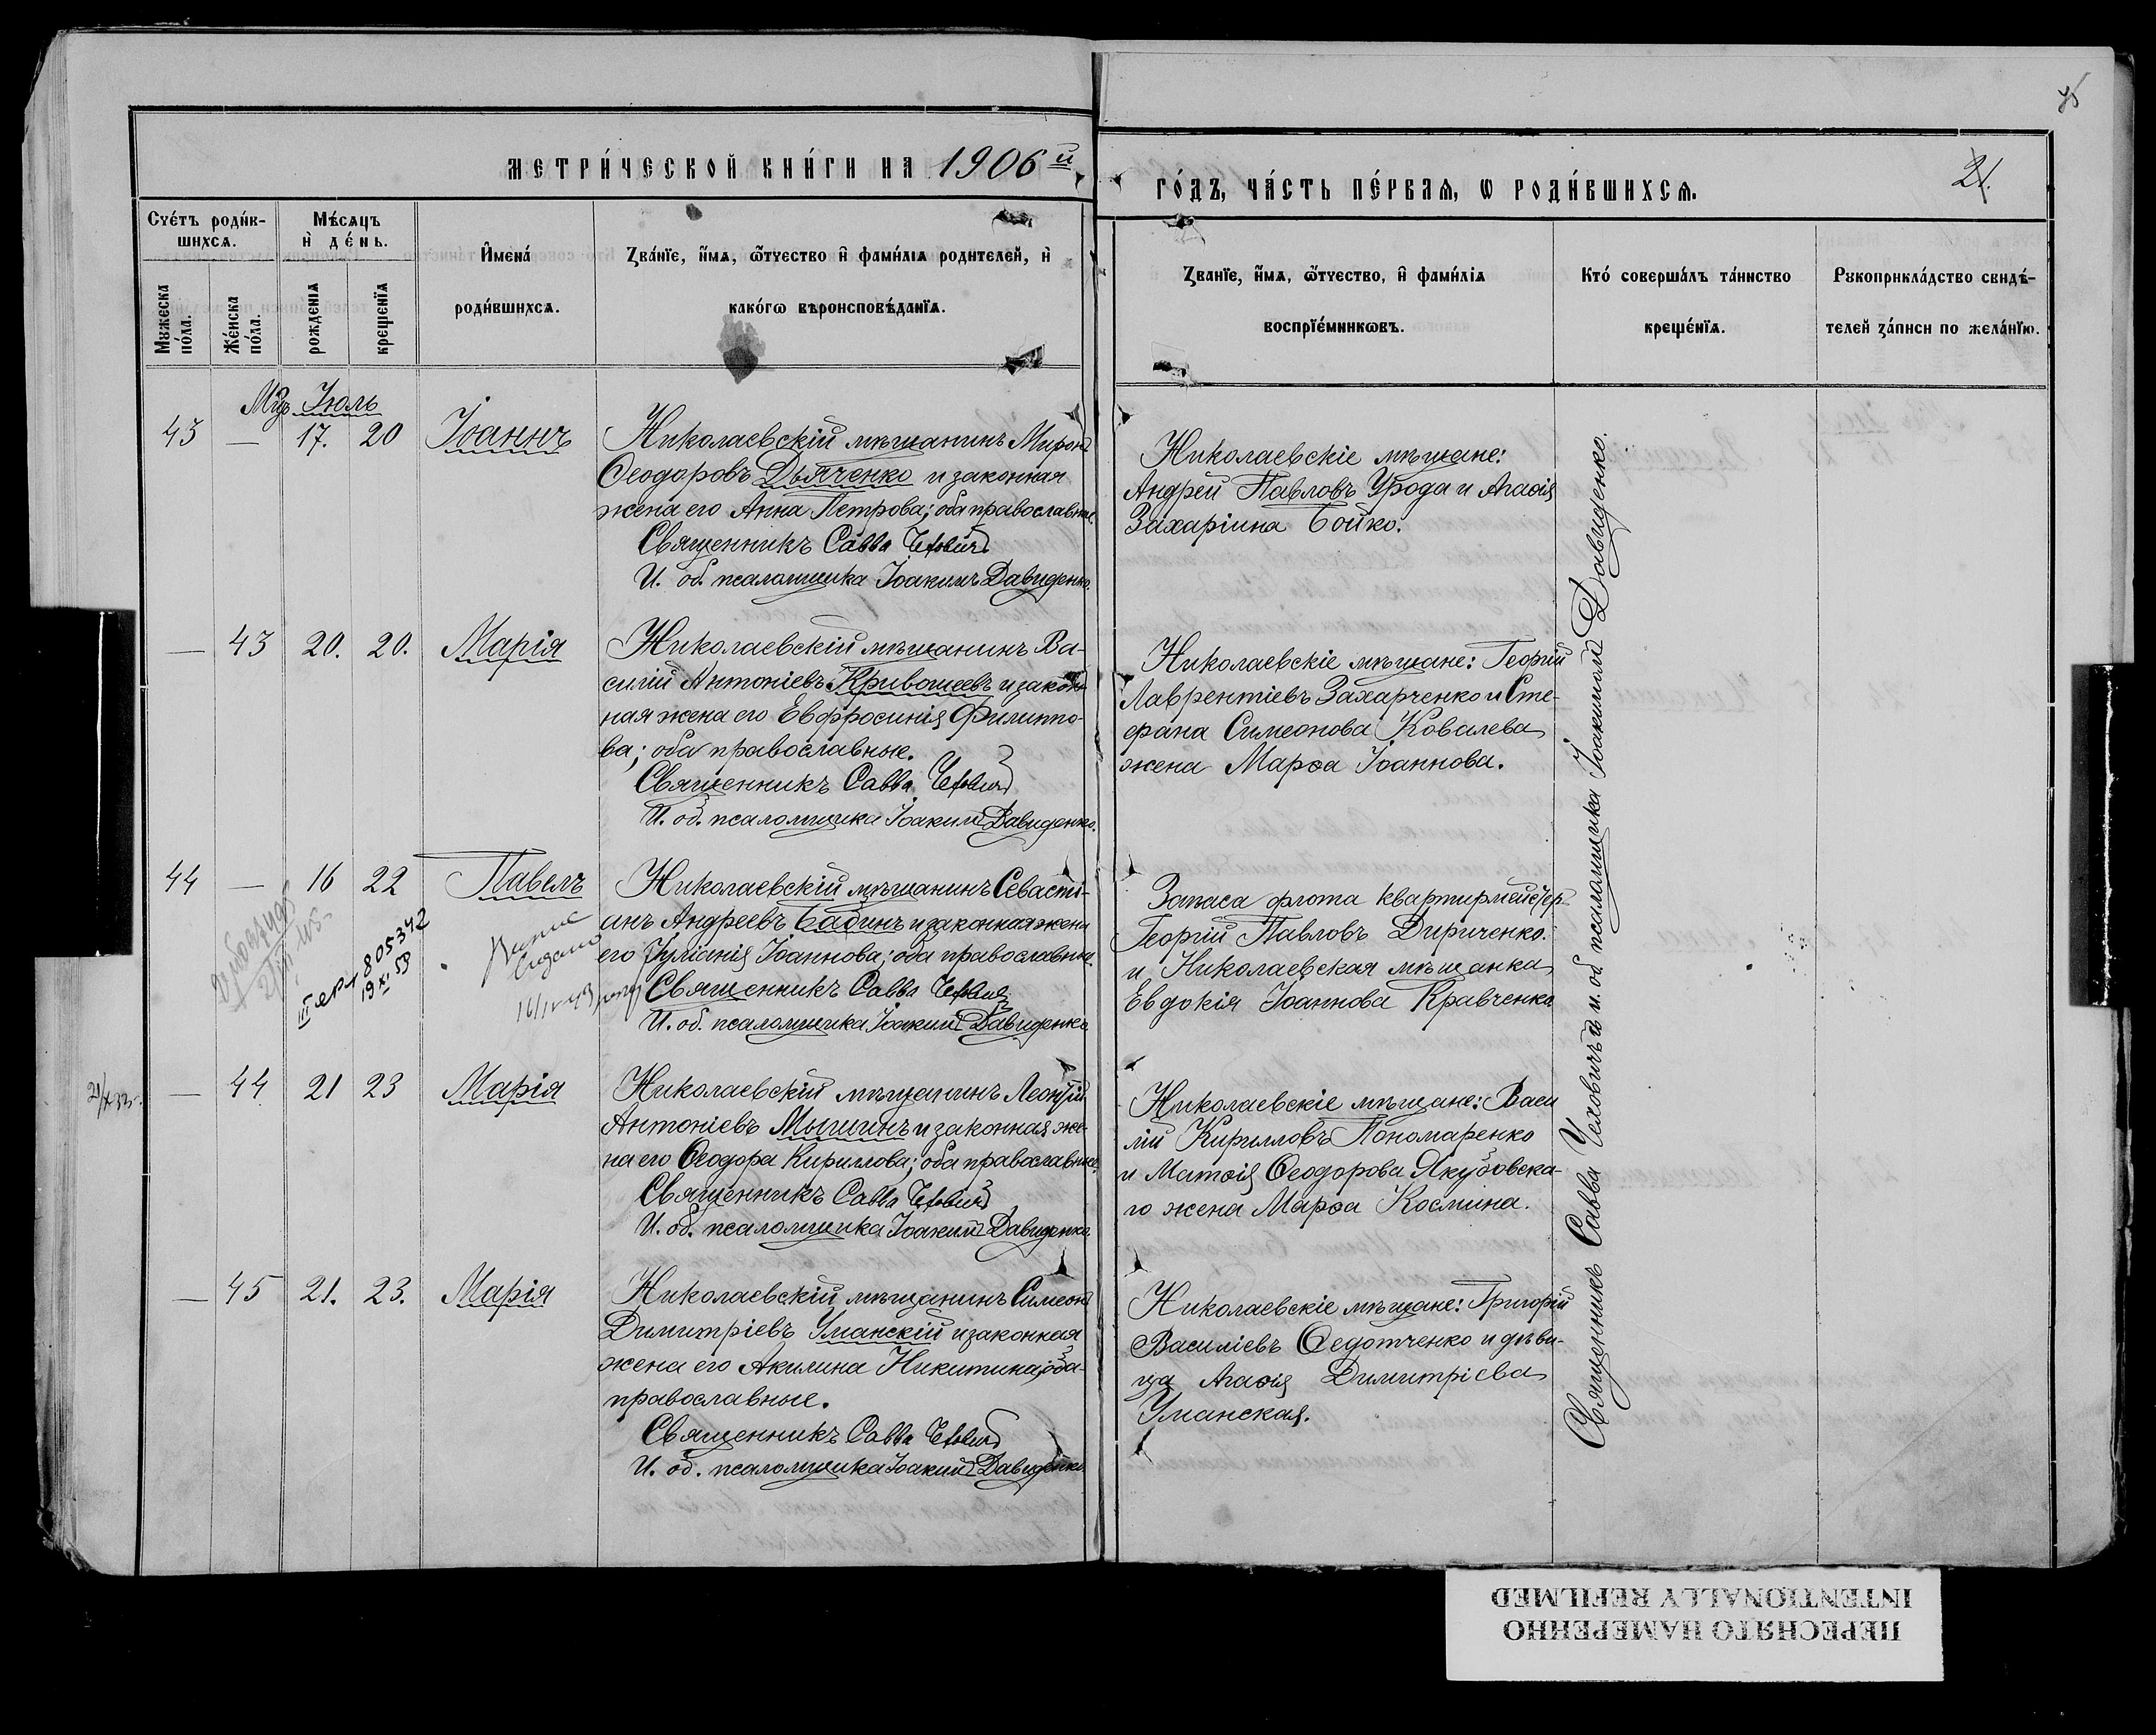 МЕТРИ́ЧЕСКОЙ КНИ́ГИ НА 1906й
ГО́ДЪ, ЧА́СТЬ ПЕ́РВАЯ, Ѡ РОДИ́ВШИХСЯ.
21.
Сче́тъ роди́в-
шихся.
Мужеска
по́ла.
Же́нска
по́ла.
Мѣ́сяцъ
и҆ де́нь.
рожденія
крещенїя
И҆мена́
роди́вшихся.
Зва́нїе, и҆́мя, ѻ҆́тчество и҆ фами́лїя родителей, и҆
како́гѡ вѣроисповѣ́данїя.
Званїе, и҆́мя, ѻ҆́тчество, и҆ фами́лїя
воспрїе́мникѡвъ.
Кто́ соверша́лъ та́инство
креще́нїя.
Рукоприкла́дство свидѣ́-
телей за́писи по жела́нїю.
Мцъ Іюль
43 — 17. 20 Іоаннъ
Николаевскій мѣщанинъ Миронъ
Ѳеодоровъ Дьяченко и законная
жена его Анна Петрова; оба православные.
Священникъ Савва Чехович
И. об. псаломщика Іоакимъ Давиденко.
Николаевскіе мѣщане:
Андрей Павловъ Урода и Агаѳія
Захаріина Бойко.
— 43 20. 20. Марія
Николаевскій мѣщанинъ Ва-
силій Антоніевъ Кривошеевъ и закон-
ная жена его Евфросинія Филиппо-
ва; оба православные.
Священникъ Савва Чехович
И. об. псаломщика Іоакимъ Давиденко.
Николаевскіе мѣщане: Георгій
Лаврентіевъ Захарченко и Сте-
фана Симеонова Ковалева
жена Марѳа Іоаннова.
44 — 16 22 Павелъ
Николаевскій мѣщанинъ Севасті-
анъ Андреевъ Бабинъ и законная жена
его Іуліанія Іоаннова; оба православные.
Священникъ Савва Чехович
И. об. псаломщика Іоакимъ Давиденко
805342
19 XI 59
Запаса флота квартирмейстер
Георгій Павловъ Дириченко
и Николаевская мѣщанка
Евдокія Іоаннова Кравченко
— 44 21 23 Марія
Николаевскій мѣщанинъ Леонтій
Антоніевъ Мышинъ и законная же-
на его Ѳеодора Кириллова; оба православные.
Священникъ Савва Чехович
И. об. псаломщика Іоакимъ Давиденко.
Николаевскіе мѣщане: Васи
лій Кирилловъ Пономаренко
и Матѳія Ѳеодорова Якубовска-
го жена Марѳа Космина.
— 45 21. 23. Марія
Николаевскій мѣщанинъ Симеонъ
Димитріевъ Уманскій и законная
жена его Акилина Никитина; оба
православные.
Священникъ Савва Чехович
И. об. псаломщика Іоакимъ Давиденко
Николаевскіе мѣщане: Григорій
Василіевъ Ѳедотченко и дѣви-
ца Агаѳія Димитріева
Уманская.
Священникъ Савва Чеховичъ и и. об. псаломщика Іоакимъ Давиденко.
ПЕРЕСНЯТО НАМЕРЕННО
INTENTIONALLY REFILMED